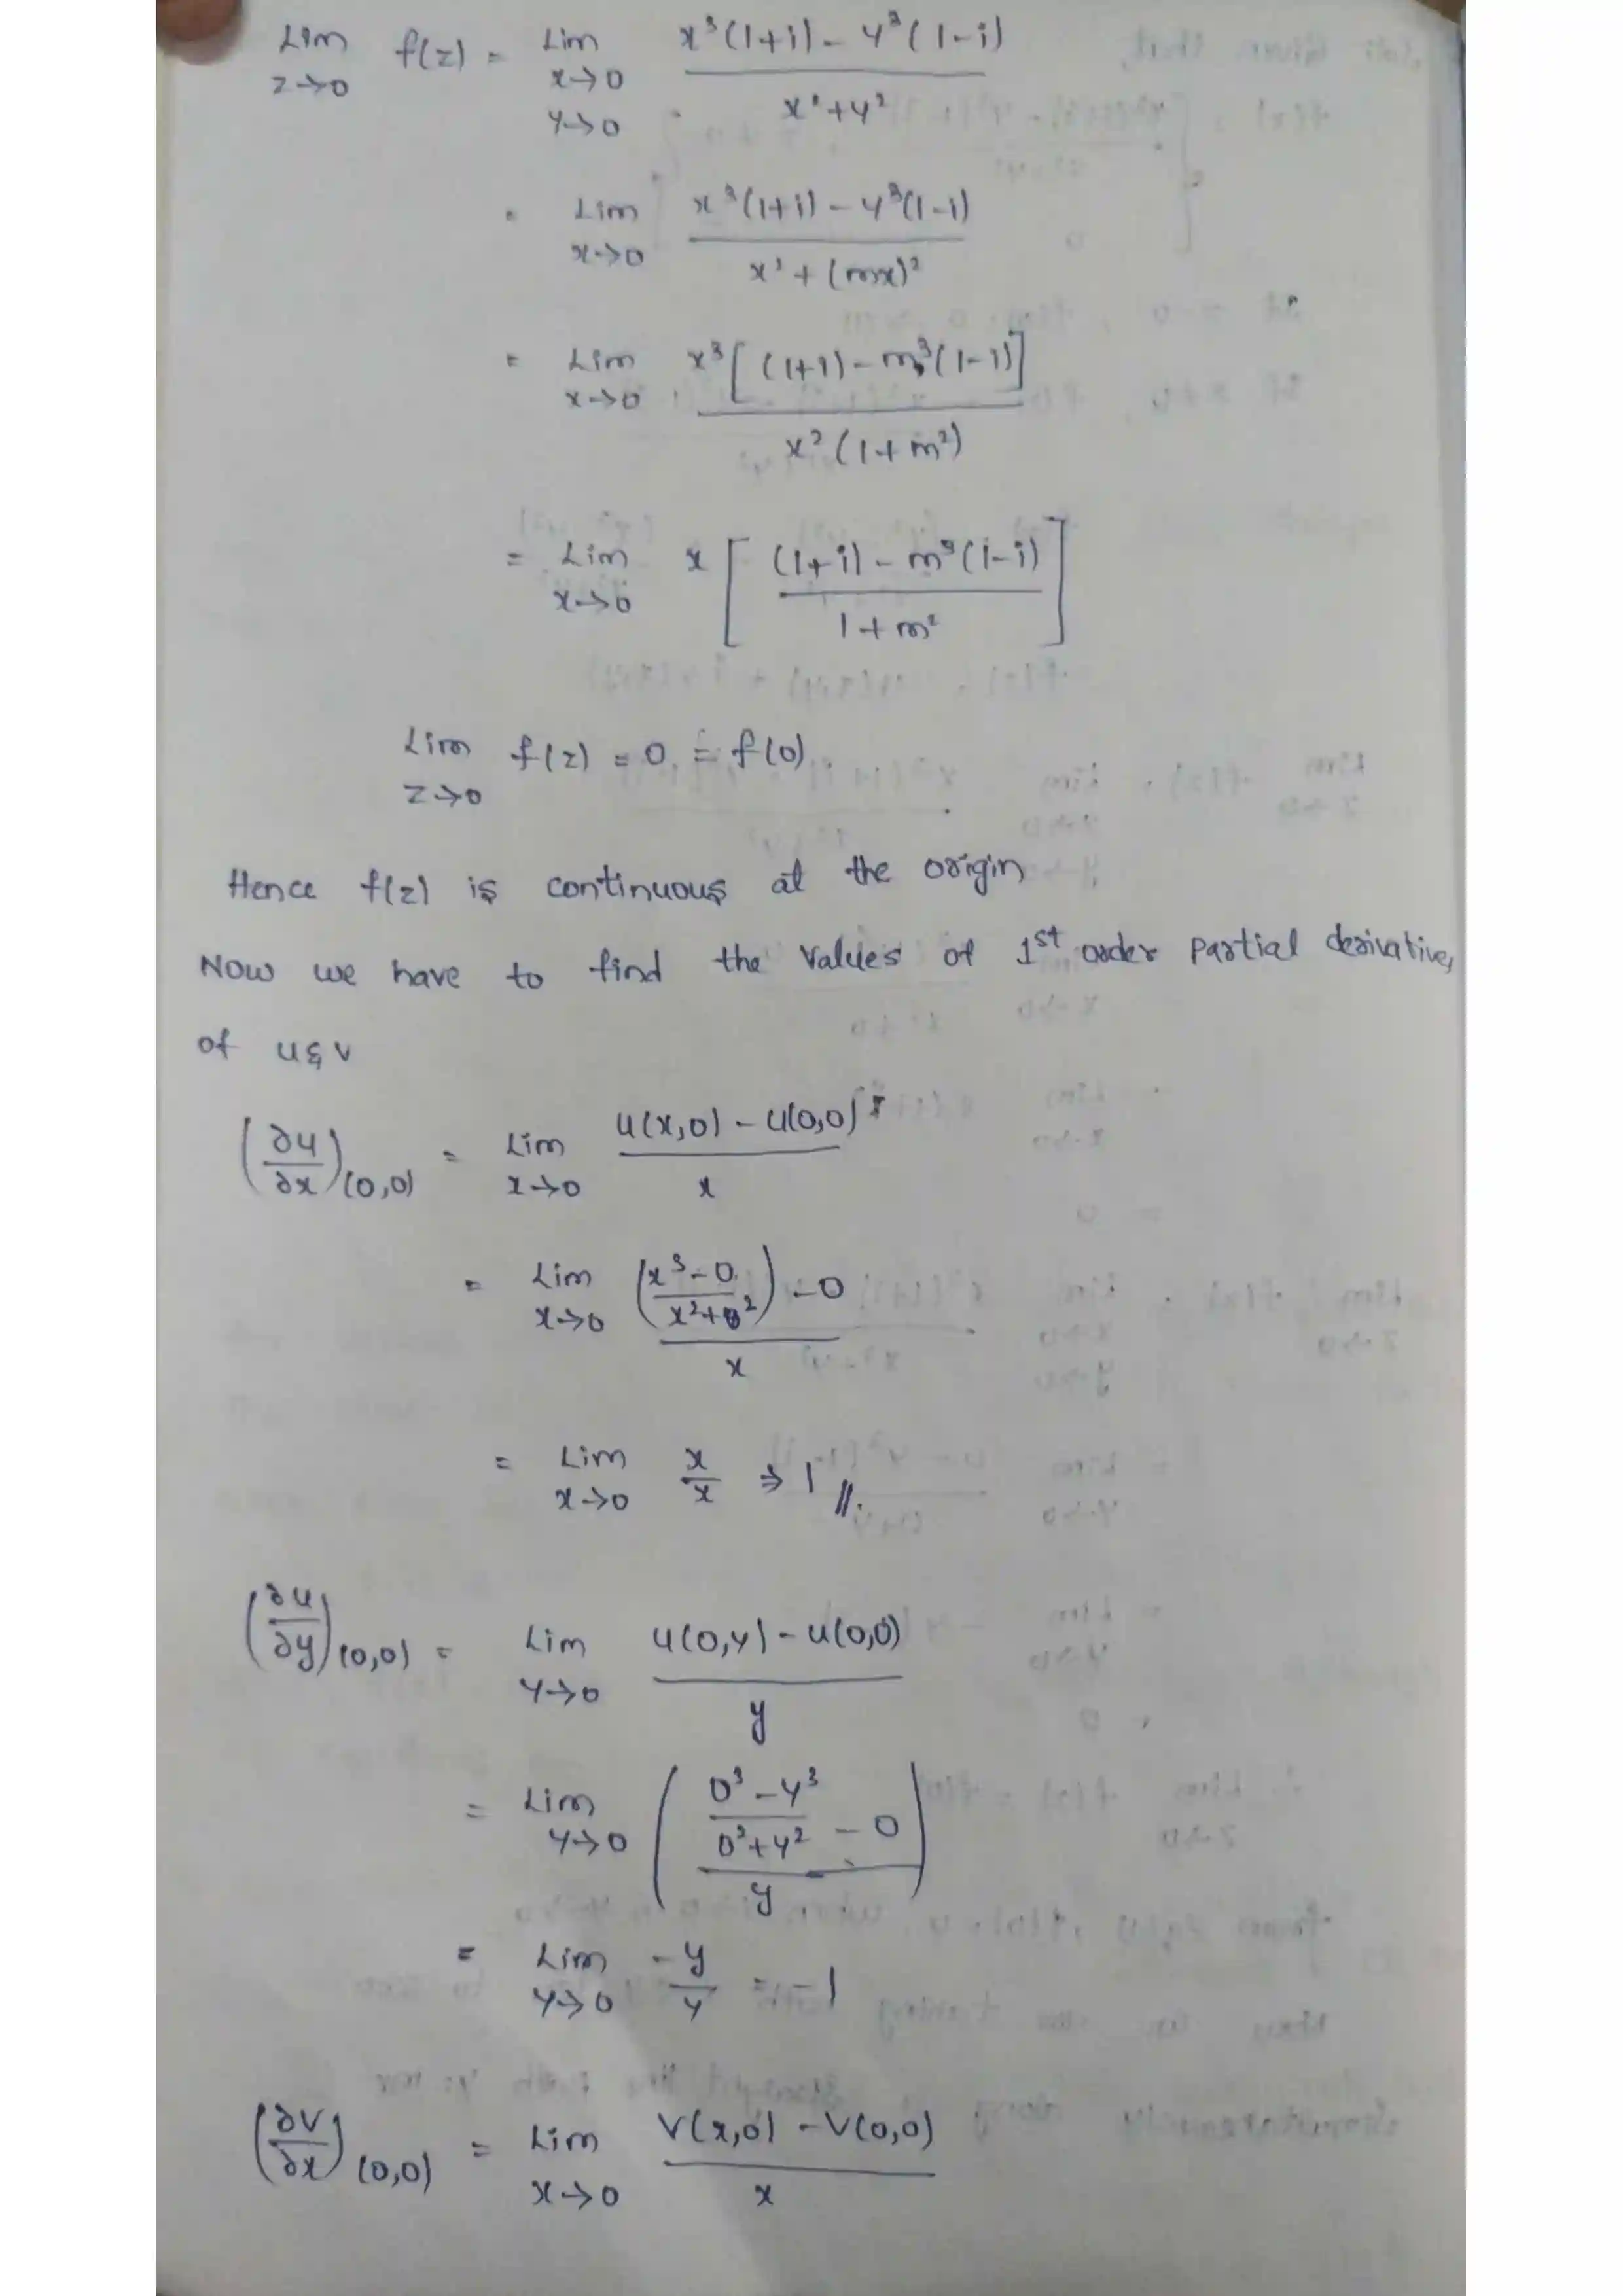 Lim f(z) = Lim x³(1+i) - y³(1-i)
z→0 x→0 x²+y²
y→0
= Lim x³(1+i) - y³(1-i)
x→0 x²+(mx)²
= Lim x³[(1+i) - m³(1-i)]
x→0 x²(1+m²)
= Lim x[(1+i) - m³(1-i)]
x→0 1+m²
Lim f(z) = 0 = f(0).
z→0
Hence f(z) is continuous at the origin
Now we have to find the values of 1st order partial derivatives
of u & v
(∂u/∂x)(0,0) = Lim u(x,0) - u(0,0)
x→0 x
= Lim (x³-0 / x²+0²) - 0
x→0 x
= Lim x/x ⇒ 1 //.
x→0
(∂u/∂y)(0,0) = Lim u(0,y) - u(0,0)
y→0 y
= Lim (0³-y³ / 0²+y² - 0)
y→0 y
= Lim -y/y = -1
y→0
(∂v/∂x)(0,0) = Lim v(x,0) - v(0,0)
x→0 x